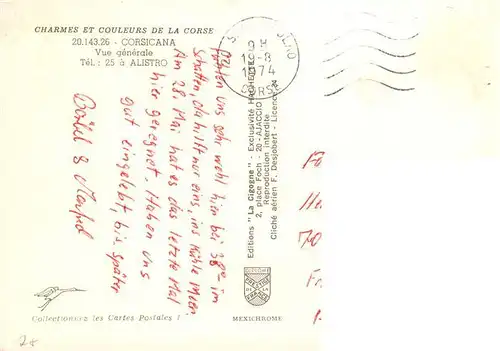 CHARMES ET COULEURS DE LA CORSE
20.143.26 - CORSICANA
Vue générale
Tél.: 25 à ALISTRO
9 H
1 -8
1974
CORSE
Fühlen uns sehr wohl hier bei 38° im
Schatten, da hilft nur eins, ins kühle Meer.
Am 28. Mai hat es das letzte Mal
hier geregnet. Haben uns
gut eingelebt, bis später
Bärbel & Manfred
Editions "La Cigogne" - Exclusivité HACHETTE
2, place Foch - 20-AJACCIO
Reproduction interdite
Cliché aérien F. Desjobert - Licence
70
Collectionnez les Cartes Postales !
MEXICHROME